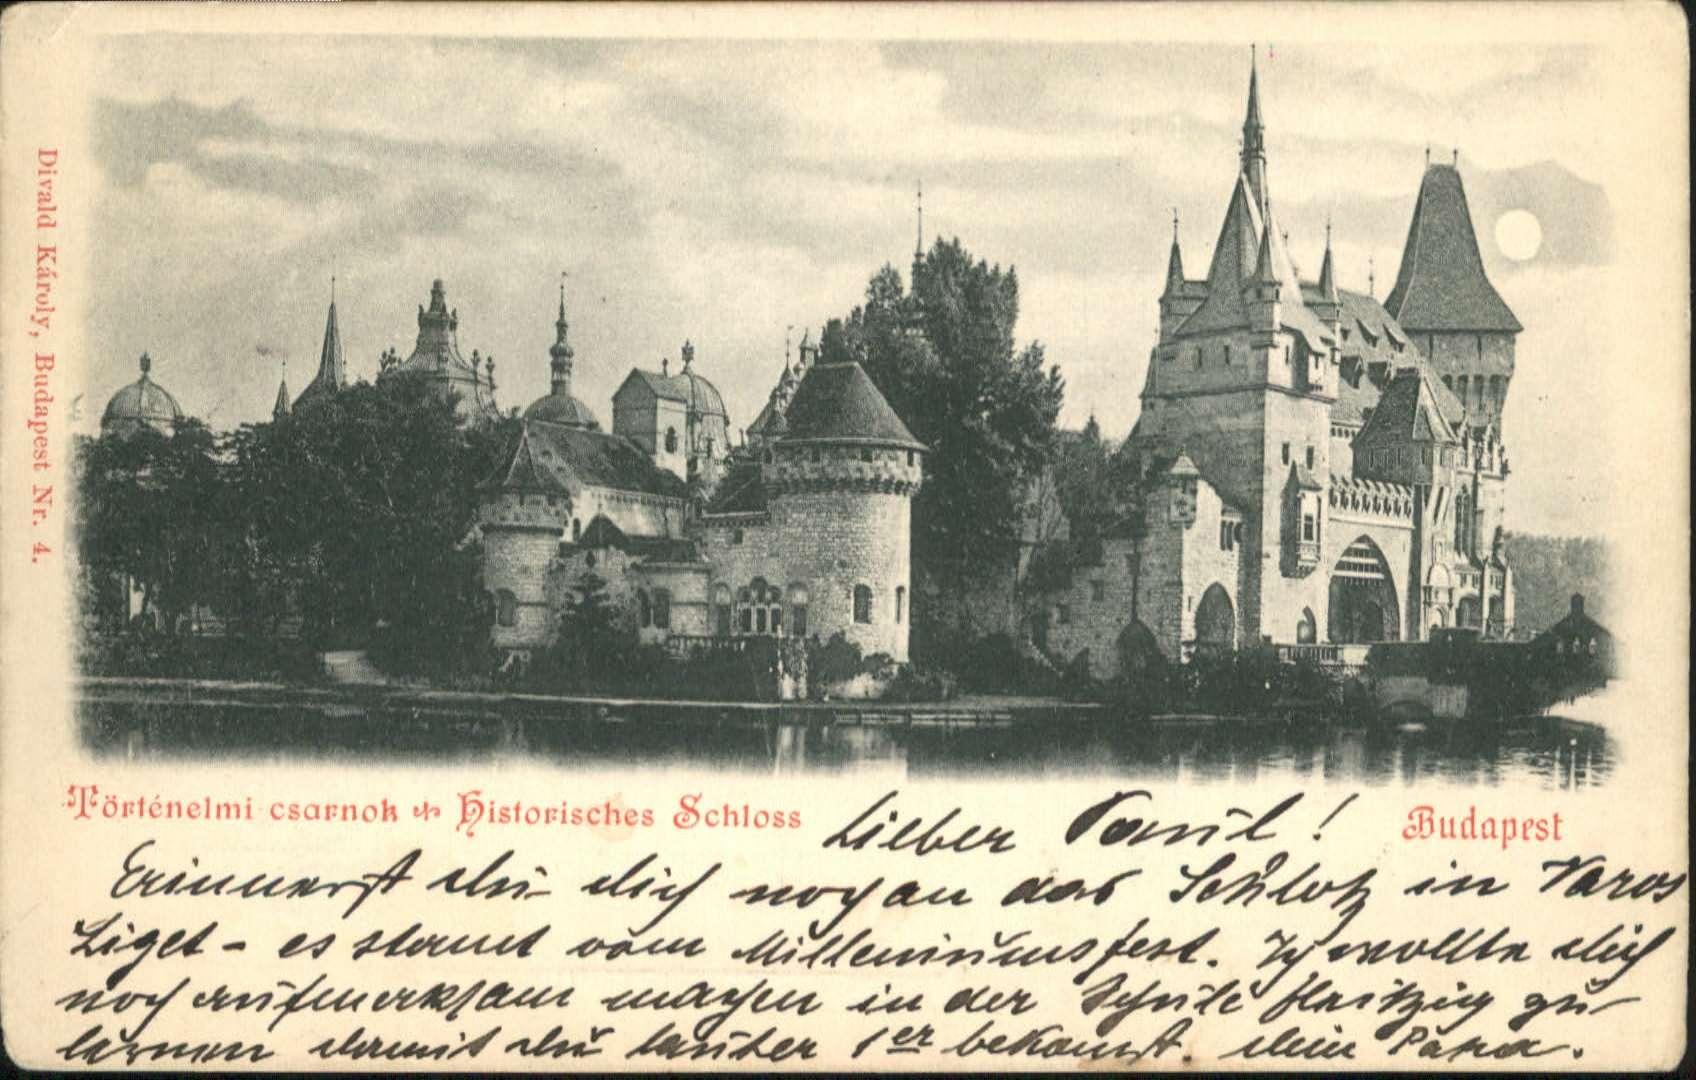 Divald Károly, Budapest Nr. 4.
Történelmi csarnok Historisches Schloss
Budapest
Lieber Paul!
Erinnerst du dich noch an das Schloß in Varos
Liget - es stamt vom Milleniumsfest. Ich wollte dich
noch aufmerksam machen in der Schule fleißig zu
lernen damit du lauter 1er bekomst. dein Papa.